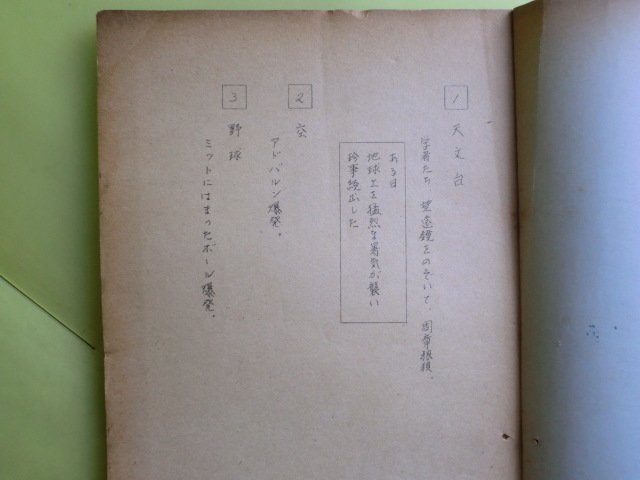 1 天文台
学者たち、望遠鏡をのぞいて、周章狼狽。
ある日
地球上を猛烈な暑気が襲い
珍事続出した
2 空
アドバルン爆発。
3 野球
ミットにはまったボール爆発。